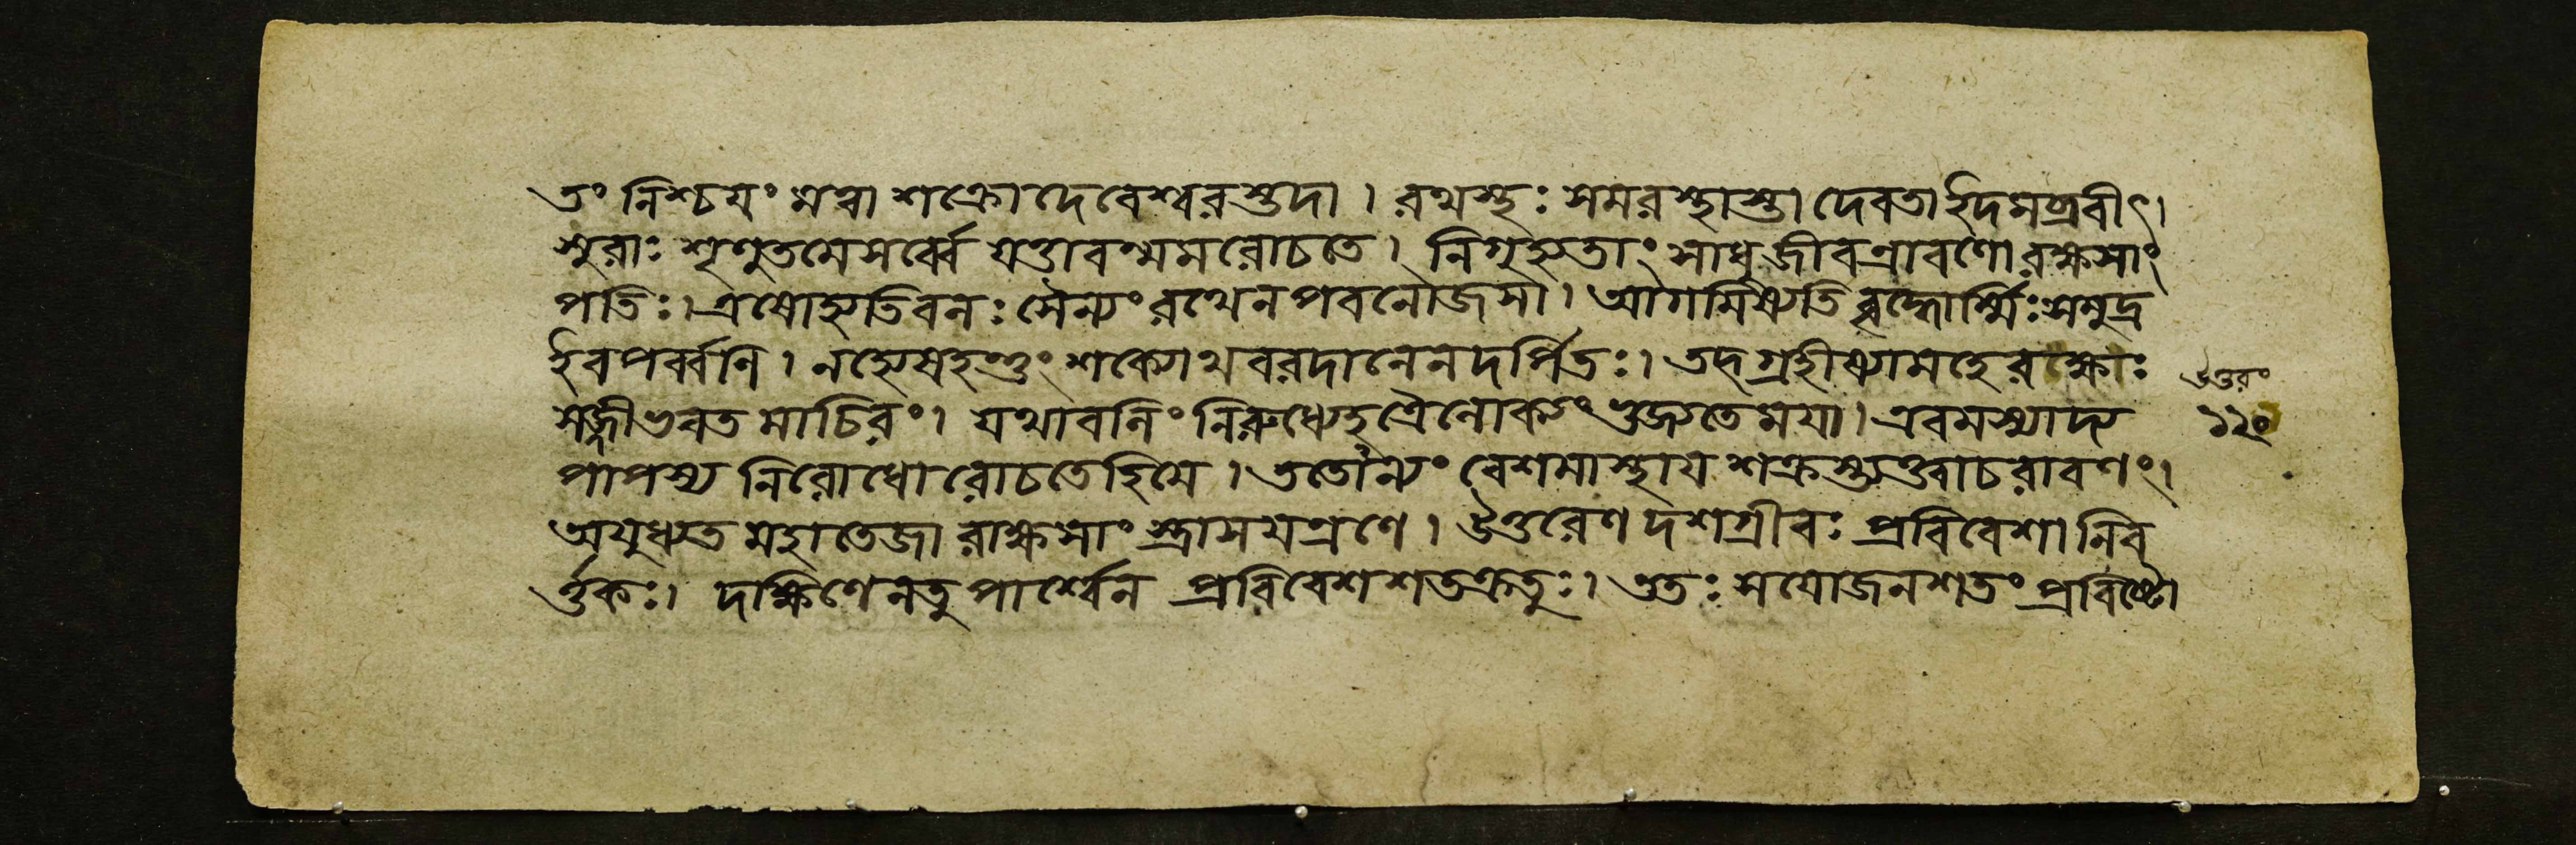 তং নিশ্চযং মত্বা শক্রো দেবেশ্বরস্তদা । রথস্থঃ সমরস্থাস্তা দেবতা ইদমব্রবীৎ।
সুরাঃ শৃণুতমেসর্ব্বে যত্তাবন্মমরোচতে। নিগৃহ্যতাং সাধু জীবন্রাবণো রক্ষসাং
পতিঃ। এষোহ্যতিবলঃ সৈন্যং রথেনপবনৌজসা। আগমিষ্যতি বৃদ্ধোর্ম্মিঃ সমুদ্র
ইবপর্ব্বণি। নহ্যেষহন্তুং শক্যোথবরদানেনদর্পিতঃ। তদ্গ্রহীষ্যামহেরক্ষোঃ
সজ্জীভবত মাচিরং। যথাবলিং নিরুধ্যেহত্রৈলোক্যং ভুজ্যতেমযা। এবমস্যাদ্য
পাপস্য নিরোধো রোচতেহিমে। ততোন্যং দেশমাস্থায শক্রস্ত্যক্ত্বাচরাবণং।
অযুধ্যত মহাতেজা রাক্ষসাং স্ত্রাসযন্রণে। উত্তরেণ দশগ্রীবঃ প্রবিবেশানিব
র্ত্তকঃ। দক্ষিণেনতু পার্শ্বেন প্রবিবেশশতক্রতুঃ। ততঃ সযোজনশতং প্রবিষ্টো
উত্তরং
১২০